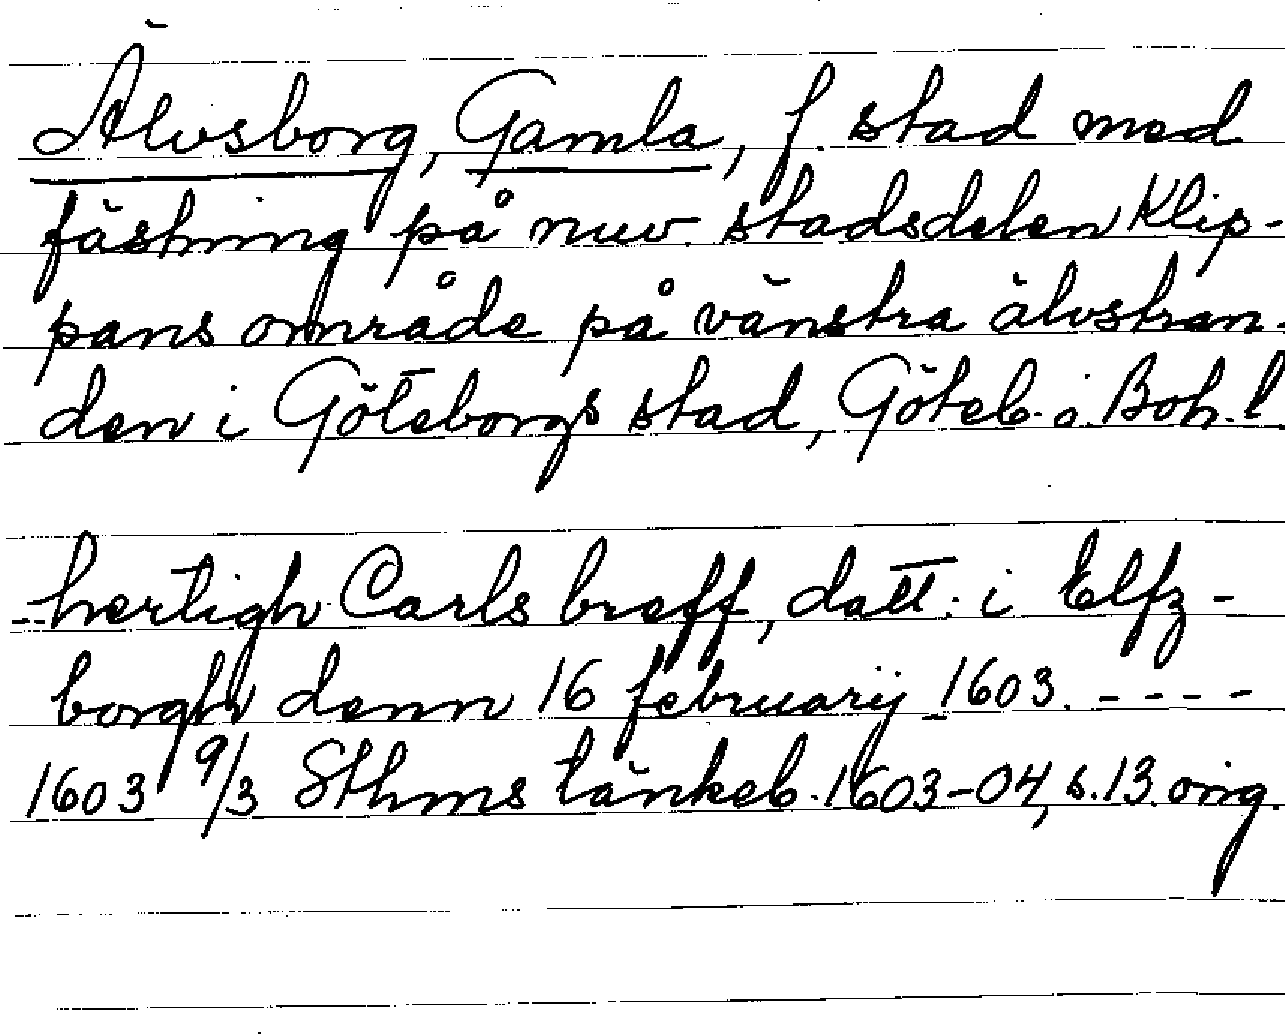 Älvsborg, Gamla, f. stad med
fästning på nuv. stadsdelen Klip-
pans område på vänstra älvstran-
den i Göteborgs stad, Göteb. o. Boh. l
--hertigh Carls breff, datt. i Elfz-
borgh denn 16 februarij 1603. ----
1603 9/3 Sthms tänkeb. 1603-04, s. 13. orig.